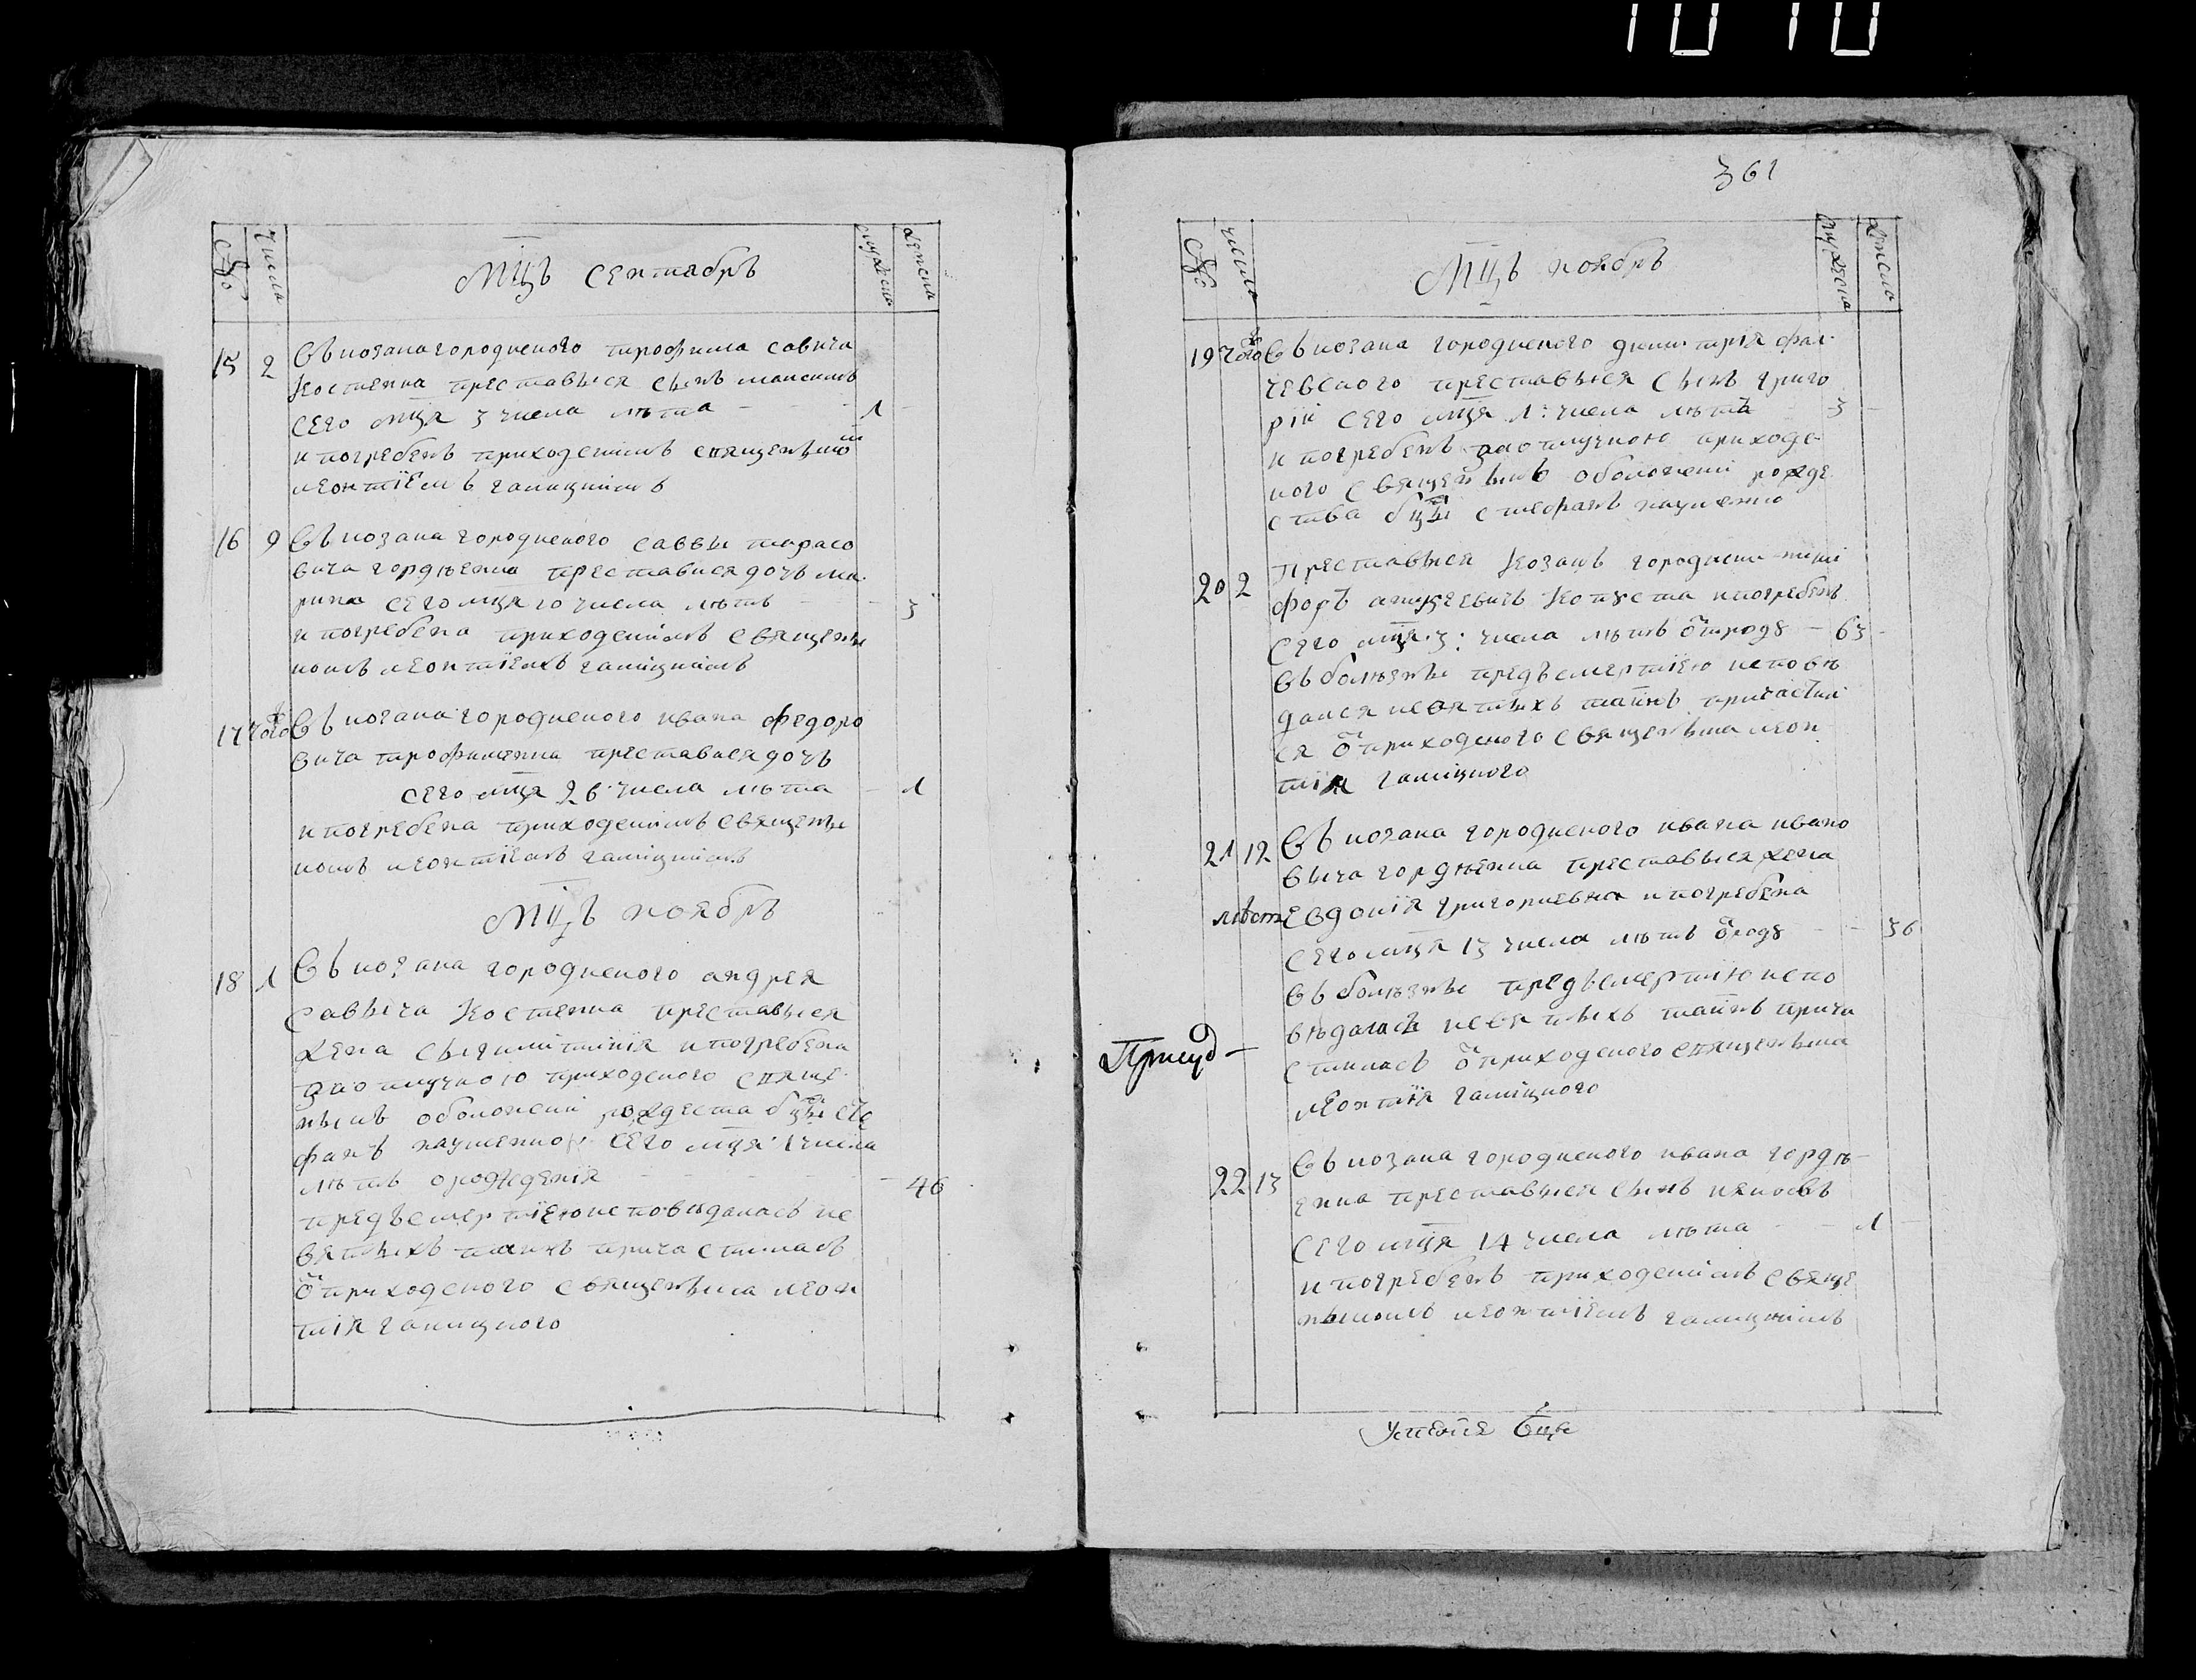 1010
№ числа Мцъ сентябръ мужеска женска
15 2 Въ козака городнского трофима савича
костенка преставыся сынъ максимъ
сего мця 3 числа лѣта 1
и погребенъ приходскимъ священыко
леонтіемъ галицкимъ
16 9 Въ козака городнского саввы тарасо
вича гордѣенка преставися дочъ ма
рина сего мця 10 числа лѣтъ 3
и погребена приходскимъ священы
комъ леонтіемъ галицкимъ
17 того Въ козака городнского ивана федоро
вича трофименка преставися дочъ
сего мця 26 числа лѣта 1
и погребена приходскимъ священы
комъ леонтіемъ галицкимъ
Мцъ ноябръ
18 1 Въ козака городнского андрея
савыча костенка преставыся
жена и погребена
за отлучкою приходского свяще
ныкъ оболонскій рождества бцы сте
фанъ науменко сего мця 1 числа
лѣтъ орожденія 46
предъ смертіею исповѣдалась и с
вятыхъ таинъ причастилась
ѿ приходского священыка леон
тія галицкого
361
№ число Мцъ ноябръ мужеска женска
19 того Въ козака городнского димитрія фал
чевского преставыся сынъ григо
рій сего мця 1: числа лѣтъ 3
и погребенъ за отлучкою приходс
кого священыкъ оболонскій рожде
ства бцы стефанъ науменко
20 2 Преставыся козакъ городнски ники
форъ капуста и погребенъ
сего мця 3: числа лѣтъ ѿ роду 63
въ болѣзны предъ смертіею исповѣ
дался и святыхъ таинъ причастил
ся ѿ приходского священыка леон
тія галицкого
21 12 Въ козака городнского ивана ивано
выча гордѣенка преставыся жена
евдокія григориевна и погребена
сего мця 13 числа лѣтъ ѿ роду 36
въ болѣзны предъ смертію испо
вѣдалась и святыхъ таинъ прича
стилась ѿ приходского священыка
леонтія галицкого
22 13 Въ козака городнского ивана гордѣ
енка преставыся сынъ яковъ
сего мця 14 числа лѣта 1
и погребенъ приходскимъ свяще
ныкомъ леонтіемъ галицкимъ
Успенія Бцы